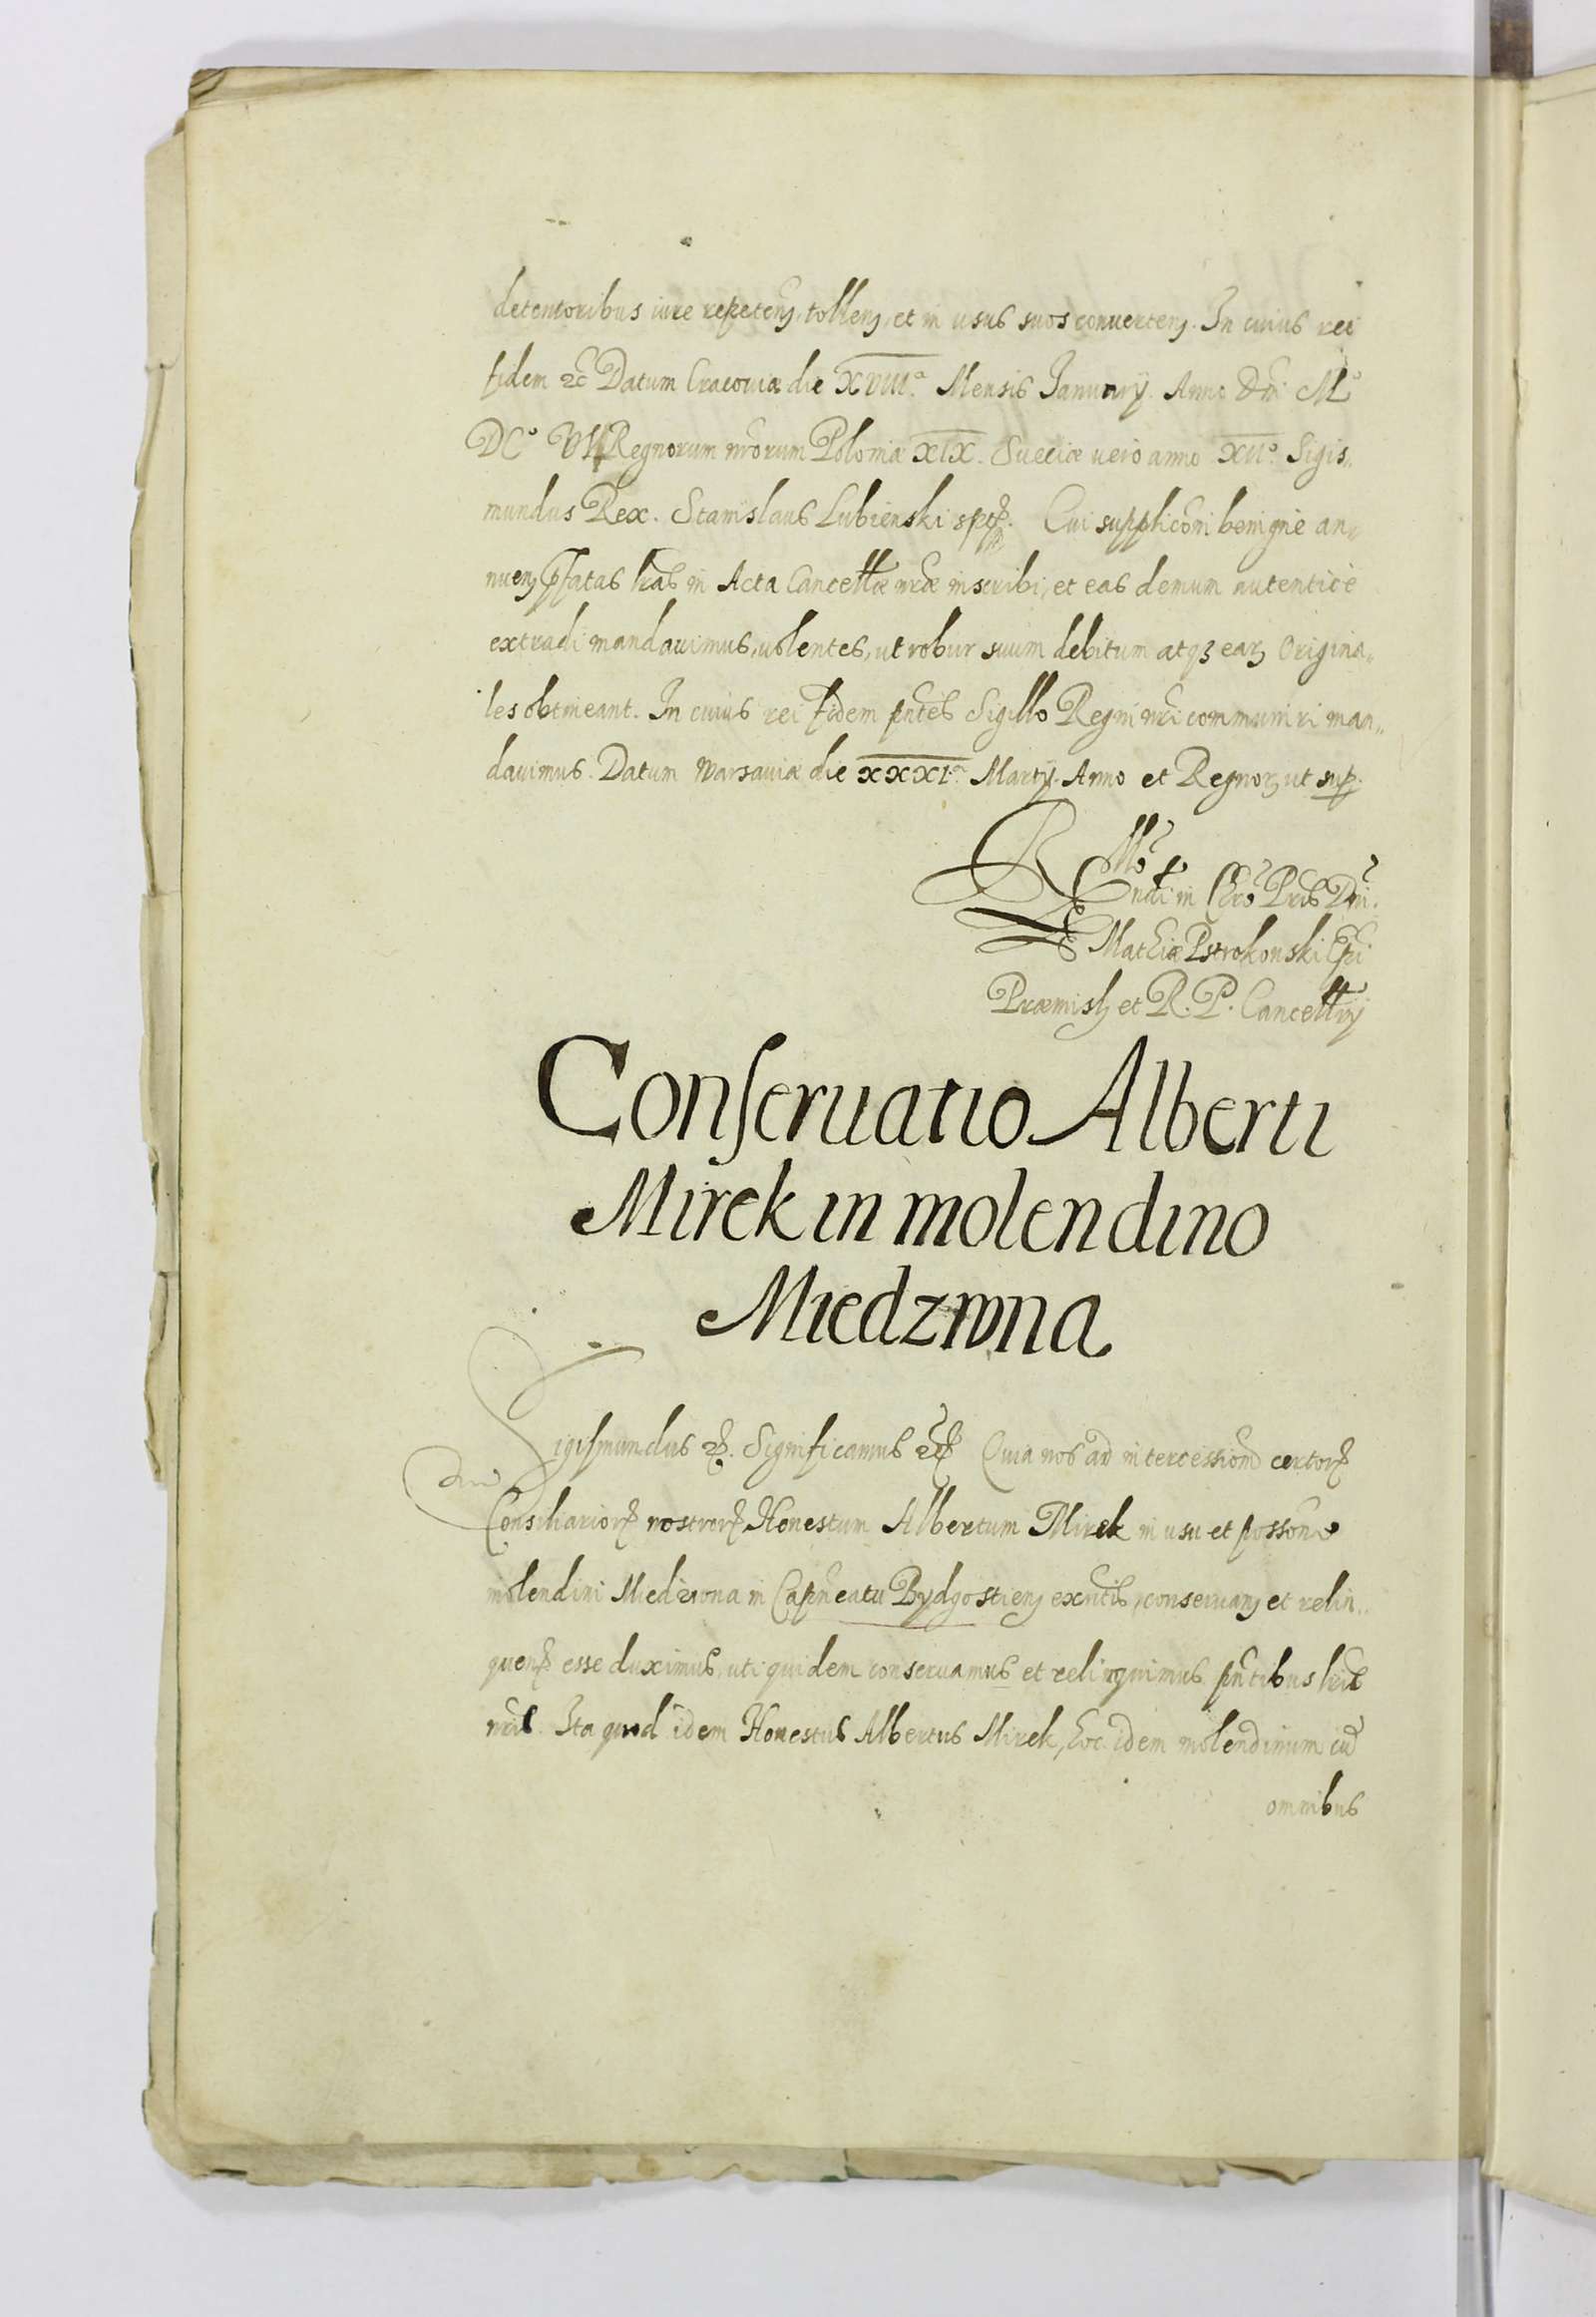 detentoribus iure repetens, tollens, et in usus suos convertens. In cuius rei
fidem etc Datum Cracoviæ die XVIII.ª Mensis Januarij. Anno Dni M°
DC° VI Regnorum nrorum Poloniæ XIX. Sueciæ vero anno XII° Sigis„
mundus Rex. Stanislaus Lubienski spt. Cui supplicõni benignè an„
nuens pfatas lras in Acta Cancellæ nræ inscribi, et eas demum autenticè
extradi mandavimus, volentes, ut robur suum debitum atqз earz Origina„
les obtineant. In cuius rei fidem pntes Sigillo Regni nri communiri man„
davimus. Datum Warsaviæ die XXXI.ª Martij. Anno et Regnorz ut sup.
R Mi
ndi in Chro Pris Dni.
Mathiæ Pstrokonski Epi
Præmislz et R. P. Cancellrij
Conseruatio Alberti
Mirek in molendino
Miedzwna
Sigismundus etc. Significamus etc Quia nos ad intercessionẽ certorz
Consiliariorz nostrorz Honestum Albertum Mirek in usu et possone
molendini Miedzwna in Capneatu Bydgostiens exntis, conseruanz et relin„
quenz esse duximus, uti quidem conseruamus et relinquimus pntibus lris
nris. Ita quod idem Honestus Albertus Mirek, hoc idem molendinum cũ
omnibus